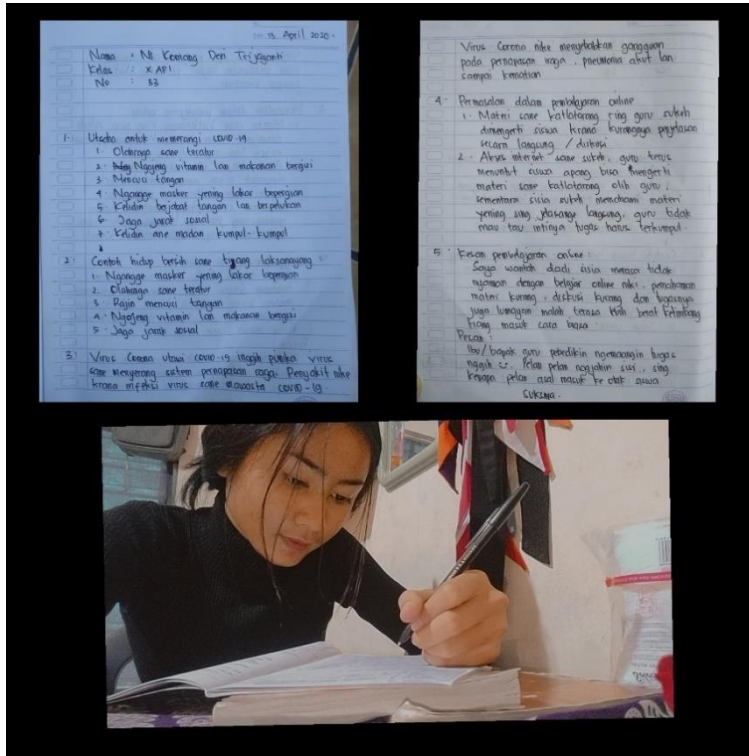 13 April 2020.
Nama : Ni Komang Devi Trijayanti
Kelas : X AP1
No : 33
1. Utsaha antuk memerangi covid-19
1. Olahraga sane teratur
2. Ngajeng vitamin lan makanan bergizi
3. Mencuci tangan
4. Ngangge masker yening lakar bepergian
5. Kelidin berjabat tangan lan berpelukan
6. Jaga jarak sosial
7. Kelidin ane madan kumpul-kumpul
2. Contoh hidup bersih sane tiyang laksanayang :
1. Ngangge masker yening lakar bepergian
2. Olahraga sane teratur
3. Rajin mencuci tangan
4. Ngajeng vitamin lan makanan bergizi
5. Jaga jarak sosial
3. Virus Corona utawi covid-19 inggih punika virus
sane menyerang sistem pernapasan raga. Penyakit nike
krana infeksi virus sane mawasta covid-19.
Virus Corona nike menyebabkan gangguan
pada pernapasan raga, pneumonia akut lan
sampai kematian
4. Permasalan dalam pembelajaran online
1. Materi sane katlatarang ring guru sukeh
dimengerti siswa krana kurangnya penjelasan
secara langsung / diskusi
2. Akses internet sane sukeh, guru terus
menuntut siswa apang bisa mengerti
materi sane katlatarang olih guru,
sementara sisia sukeh memahami materi
yening sing jelasange langsung, guru tidak
mau tau intinya tugas harus terkumpul.
5. Kesan pembelajaran online :
Saya wantah dadi sisia merasa tidak
nyaman dengan belajar online niki, pemahaman
materi kurang, diskusi kurang dan tugasnya
juga lumayan malah terasa lebih berat ketimbang
tiang masuk cara biasa.
Pesan :
Ibu/bapak guru ngemaangin tugas
nggih Pelan pelan sing
kenapa pelan asal masuk ke otak siswa
suksma.